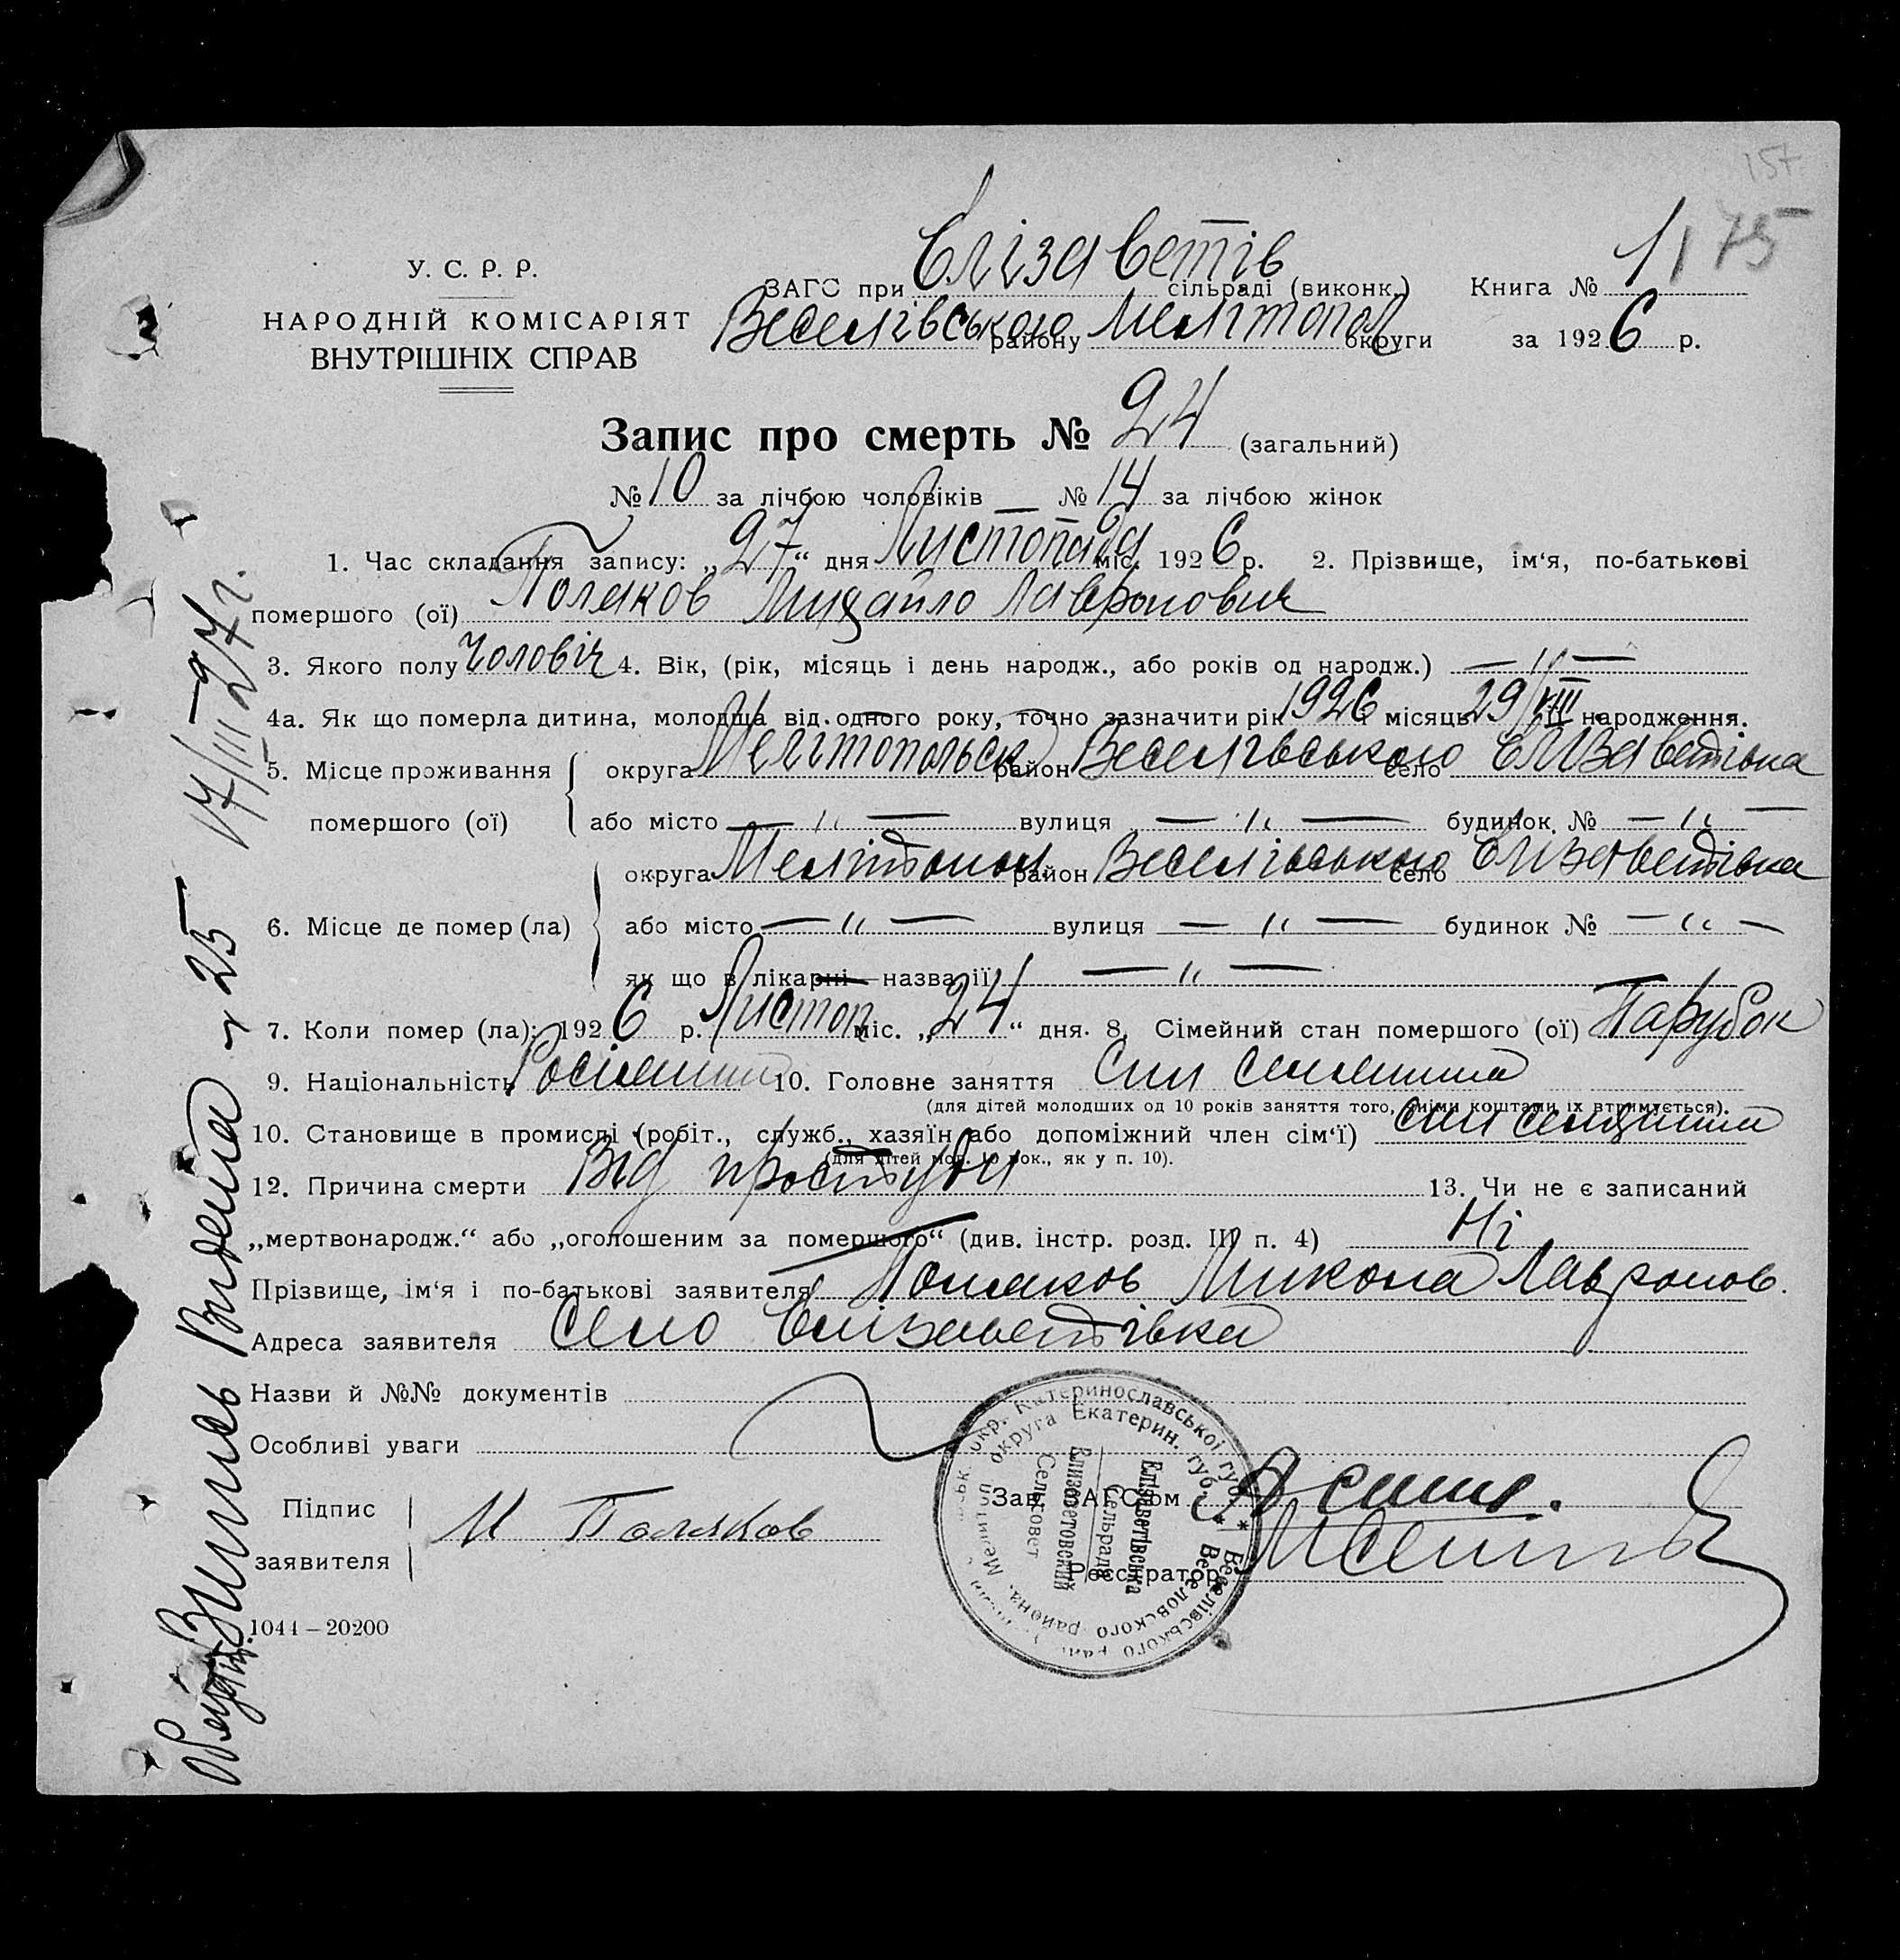 157.
175
У. С. Р. Р.
НАРОДНІЙ КОМІСАРІЯТ
ВНУТРІШНІХ СПРАВ
ЗАГС при Єлізаветів сільраді (виконк.) Книга № 1
Веселівського району Мелітопол округи за 1926 р.
Запис про смерть № 24 (загальний)
№ 10 за лічбою чоловіків — № 14 за лічбою жінок
1. Час складання запису: „27“ дня Листопада міс. 1926 р. 2. Прізвище, ім‘я, по-батькові
помершого (ої) Поляков Михайло Лавронович
3. Якого полу Чоловіч 4. Вік, (рік, місяць і день народж., або років од народж.) — „ —
4а. Як що померла дитина, молодща від одного року, точно зазначити рік 1926 місяць 29/VIII народження.
5. Місце проживання округа Мелітопольськ район Веселівського село Єлизаветівка
помершого (ої) або місто — „ — вулиця — „ — будинок № — „ —
округа Мелітопол район Веселівського село Єлізаветівка
6. Місце де помер (ла) або місто — „ — вулиця — „ — будинок № — „ —
як що в лікарні — назва її — „ —
7. Коли помер (ла): 1926 р. Листоп міс. „24“ дня. 8. Сімейний стан помершого (ої) Парубок
9. Національність Росіянин 10. Головне заняття Син селянина
(для дітей молодших од 10 років заняття того, чиїми коштами їх втримується).
10. Становище в промислі (робіт., служб., хазяїн або допоміжний член сім‘ї) син селянина
(для дітей мол. 10 рок., як у п. 10).
12. Причина смерти Від простуди 13. Чи не є записаний
„мертвонародж.“ або „оголошеним за помершого“ (див. інстр. розд. III п. 4) Ні
Прізвище, ім‘я і по-батькові заявителя Поляков Микола Лавронов.
Адреса заявителя Село Єлізаветівка
Назви й №№ документів
Особливі уваги
Підпис заявителя М Поляков
Зав. ЗАГС‘ом
Реєстратор
Катеринославської губ. Веселівського
округа Екатерин. губ. Веселовского района. Мелитоп.
Елізаветівська
Сельрада
Елизаветовский
Сельсовет
1044 — 20200
Выпись Выдана 25 17/III 27 г.